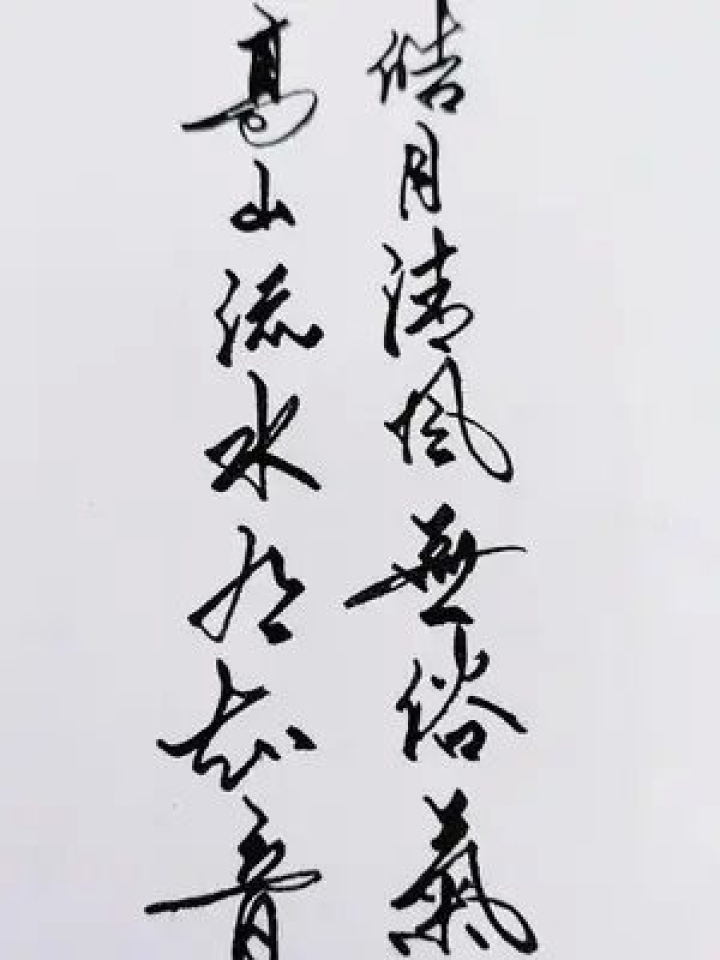 皓月清风無俗氣
高山流水有知音